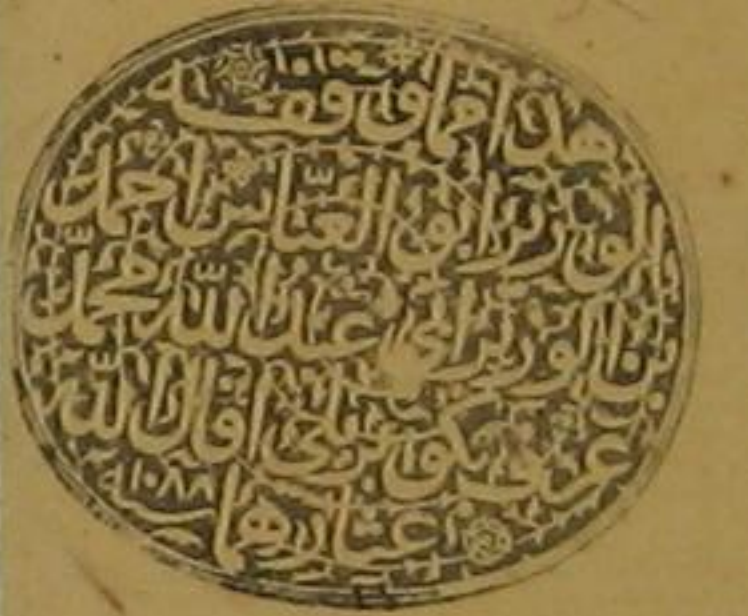 هذا مما وقفه
الوزير أبو العباس أحمد
بن الوزير أبي عبد الله محمد
عرف بكوبريلي أقال الله
عثارهما سنة ١٠٨٨